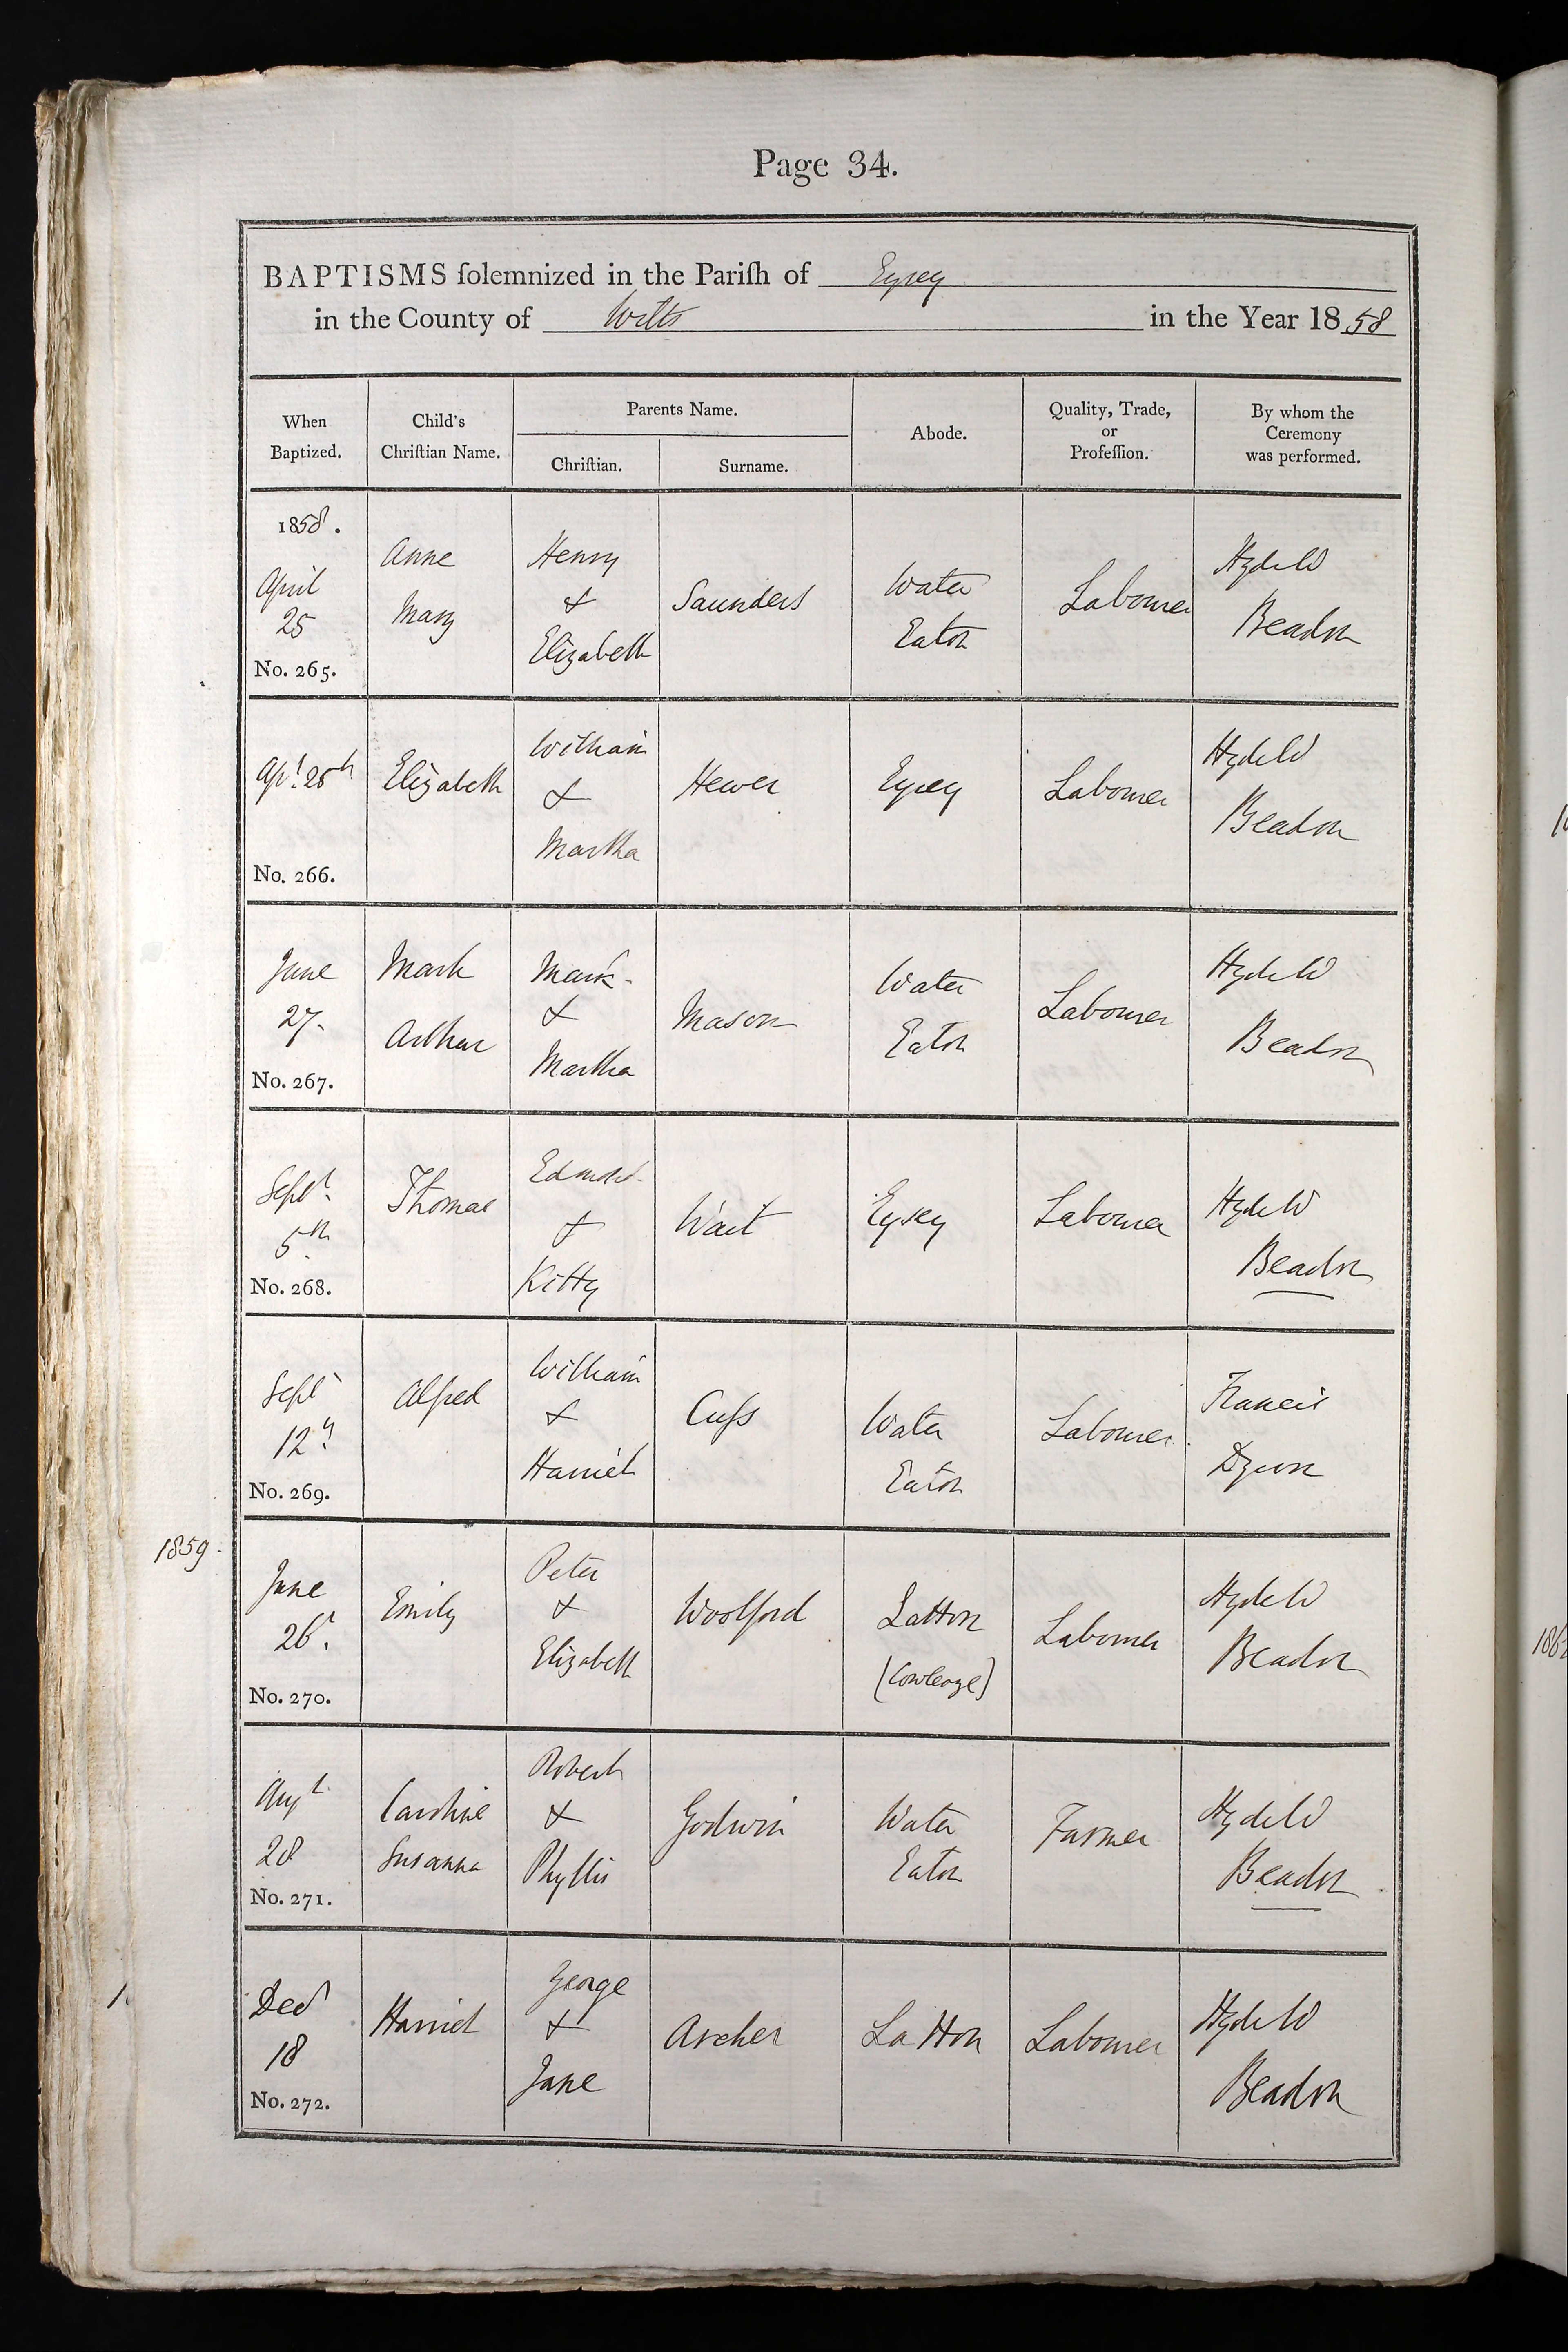 Page 34.
BAPTISMS ſolemnized in the Pariſh of Eysey
in the County of Wilts in the Year 1858
When Baptized.
Child's Chriſtian Name.
Parents Name.
Chriſtian.
Surname.
Abode.
Quality, Trade, or Profeſſion.
By whom the Ceremony was performed.
1858.
April
25
No. 265.
Anne
Mary
Henry
&
Elizabeth
Saunders
Water
Eaton
Labourer
Hyde W
Beadon
Apl. 25th
No. 266.
Elizabeth
William
&
Martha
Hewer
Eysey
Labourer
Hyde W
Beadon
June
27.
No. 267.
Mark
Arthur
Mark
&
Martha
Mason
Water
Eaton
Labourer
Hyde W
Beadon
Sept.
5th
No. 268.
Thomas
Edmond
&
Kitty
Wait
Eysey
Labourer
Hyde W
Beadon
Sept
12th
No. 269.
Alfred
William
&
Harriet
Cuſs
Water
Eaton
Labourer
Francis
Dyson
1859.
June
26.
No. 270.
Emily
Peter
&
Elizabeth
Woolford
Latton
Labourer
Hyde W
Beadon
Augt
28
No. 271.
Caroline
Susanna
Robert
&
Phyllis
Godwin
Water
Eaton
Farmer
Hyde W
Beadon
Dec
18
No. 272.
Harriet
George
&
Jane
Archer
Latton
Labourer
Hyde W
Beadon